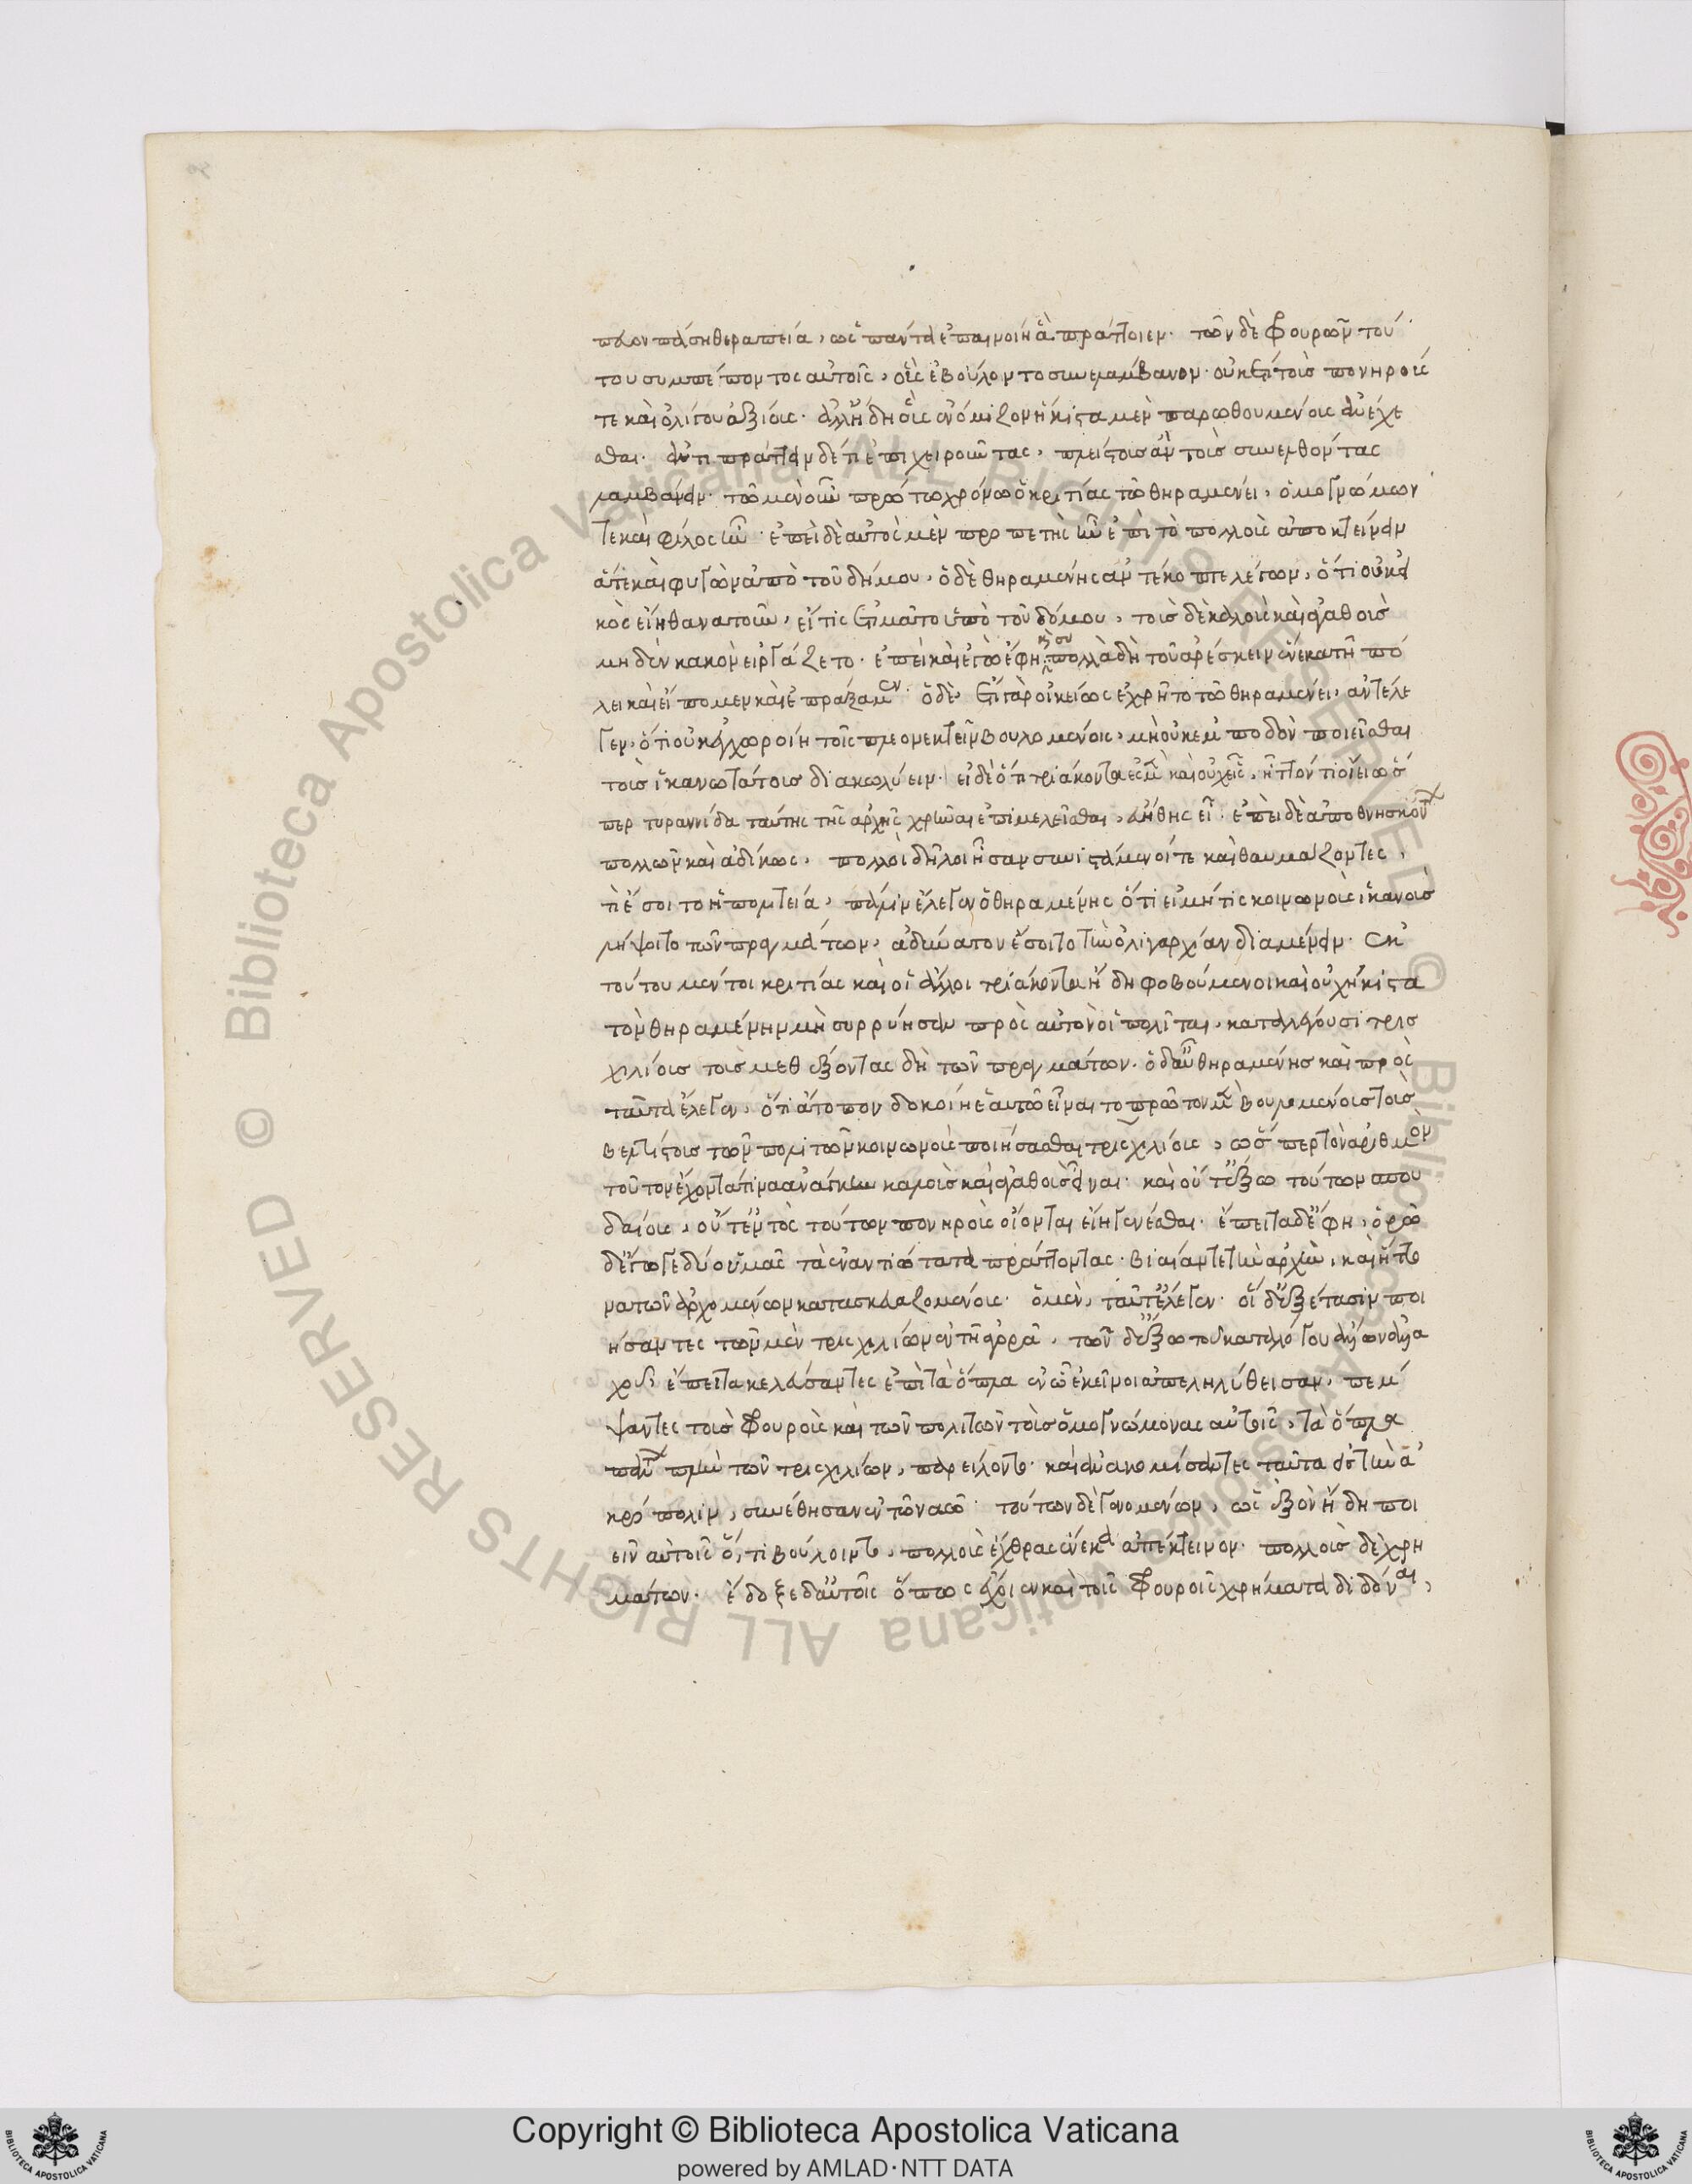 πευον πάσῃ θεραπείᾳ, ὡς πάντα ἐπαινοίη ἃ πράττοιεν. τῶν δὲ φρουρῶν τού
του συμπέμποντος αὐτοῖς, οὓς ἐβούλοντο συνελάμβανον. οὐκέτι τοὺς πονηρούς
τε καὶ ὀλίγου ἀξίους. ἀλλ' ἤδη οὓς ἐνόμιζον ἥκιστα μὲν παρωθουμένους ἀνέχε
σθαι. ἀντιπράττειν δέ τι ἐπιχειροῦντας, πλείστους ἂν τοὺς συνελθόντας
λαμβάνειν. τῷ μὲν οὖν πρώτῳ χρόνῳ ὁ κριτίας τῷ θηραμένει, ὁμογνώμων
τε καὶ φίλος ἦν. ἐπεὶ δὲ αὐτὸς μὲν προπετὴς ἦν ἐπὶ τὸ πολλοὺς ἀποκτείνειν
ἅτε καὶ φυγὼν ἀπὸ τοῦ δήμου, ὁ δὲ θηραμένης ἀντέκοπτε λέγων, ὅτι οὐκ εἰ
κὸς εἴη θανατοῦν, εἴ τις ἐτιμᾶτο ὑπὸ τοῦ δήμου, τοὺς δὲ καλοὺς καὶ ἀγαθοὺς
μηδὲν κακὸν εἰργάζετο. ἐπεὶ καὶ ἐγὼ ἔφη, καὶ σὺ πολλὰ δὴ τοῦ ἀρέσκειν ἕνεκα τῇ πό
λει καὶ εἴπομεν καὶ ἐπράξαμεν. ὁ δὲ, ἔτι γὰρ οἰκείως ἐχρῆτο τῷ θηραμένει, ἀντέλε
γεν, ὅτι οὐκ ἐγχωροίη τοῖς πλεονεκτεῖν βουλομένοις, μὴ οὐκ ἐμποδὼν ποιεῖσθαι
τοὺς ἱκανωτάτους διακωλύειν. εἰ δὲ ὅτι τριάκοντα ἐσμὲν καὶ οὐχ εἷς, ἧττόν τι οἴει ὥσ
περ τυραννίδα ταύτης τῆς ἀρχῆς χρῆναι ἐπιμελεῖσθαι, εὐήθης εἶ. ἐπεὶ δὲ ἀποθνησκόντων
πολλῶν καὶ ἀδίκως, πολλοὶ δῆλοι ἦσαν συνιστάμενοί τε καὶ θαυμάζοντες,
τί ἔσοιτο ἡ πολιτεία, πάλιν ἔλεγεν ὁ θηραμένης ὅτι εἰ μή τις κοινωνοὺς ἱκανοὺς
λήψοιτο τῶν πραγμάτων, ἀδύνατον ἔσοιτο τὴν ὀλιγαρχίαν διαμένειν. ἐκ
τούτου μέντοι κριτίας καὶ οἱ ἄλλοι τριάκοντα ἤδη φοβούμενοι καὶ οὐχ ἥκιστα
τὸν θηραμένην μὴ συρρύησαν πρὸς αὐτὸν οἱ πολῖται, καταλέγουσι τρισ
χιλίους τοὺς μεθέξοντας δὴ τῶν πραγμάτων. ὁ δ' αὖ θηραμένης καὶ πρὸς
ταῦτα ἔλεγεν, ὅτι ἄτοπον δοκοίη ἑαυτῷ εἶναι το πρῶτον μὲν βουλομένους τοὺς
βελτίστους τῶν πολιτῶν κοινωνοὺς ποιήσασθαι τρισχιλίους, ὥσπερ τὸν ἀριθμὸν
τοῦτον ἔχοντά τινα ἀνάγκην καλοὺς καὶ ἀγαθοὺς εἶναι. καὶ οὔτ' ἔξω τούτων σπου
δαίους, οὔτ' ἐντὸς τούτων πονηροὺς οἷόν ται εἴη γενέσθαι. ἔπειτα δ' ἔφη, ὁρῶ
δ' ἔγωγε δύο ὑμᾶς τὰ ἐναντιώτατα πράττοντας. βιαίαν τε τὴν ἀρχὴν, καὶ ἥττο
να τῶν ἀρχομένων κατασκευαζομένους. ὁ μὲν, ταῦτ' ἔλεγεν. οἱ δ' ἐξέτασιν ποι
ήσαντες τῶν μὲν τρισχιλίων ἐν τῇ ἀγορᾷ, τῶν δ' ἔξω τοῦ καταλόγου ἄλλων ἀλλα
χοῦ, ἔπειτα κελεύσαντες ἐπὶ τὰ ὅπλα ἐν ᾧ ἐκεῖνοι ἀπεληλύθεισαν, πέμ
ψαντες τοὺς φρουροὺς καὶ τῶν πολιτῶν τοὺς ὁμογνώμονας αὐτοῖς, τὰ ὅπλα
πάντων πλὴν τῶν τρισχιλίων, παρείλοντο. καὶ ἀνακομίσαντες ταῦτα εἰς τὴν ἀ
κρόπολιν, συνέθησαν ἐν τῷ ναῷ. τούτων δὲ γενομένων, ὡς ἐξὸν ἤδη ποι
εῖν αὐτοῖς ὅ, τι βούλοιντο, πολλοὺς ἔχθρας ἕνεκα ἀπέκτεινον. πολλοὺς δὲ χρη
μάτων. ἔδοξε δ' αὐτοῖς ὅπως ἔχοιεν καὶ τοῖς φρουροῖς χρήματα διδόναι,
Copyright © Biblioteca Apostolica Vaticana
powered by AMLAD·NTT DATA